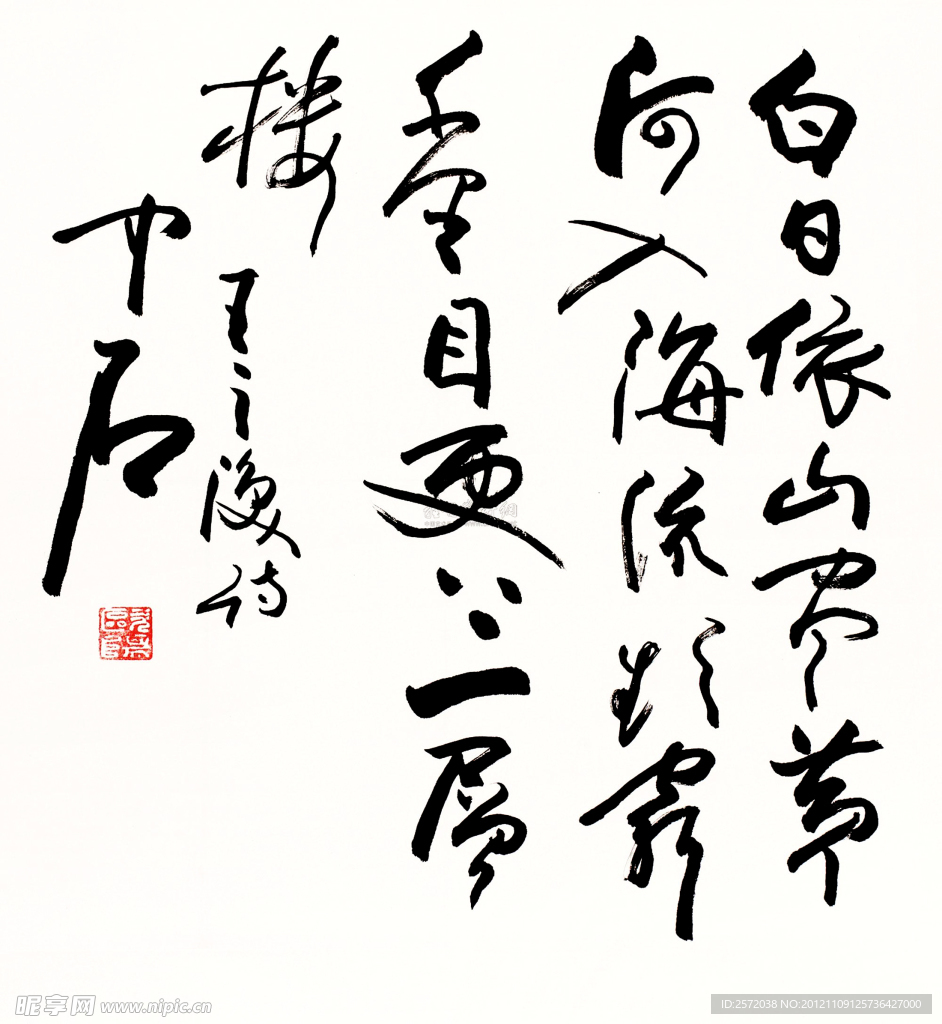 白日依山尽黄
河入海流欲窮
千里目更上一層
楼
王之涣诗
中石
昵享网 www.nipic.cn
ID:2572038 NO:20121109125736427000